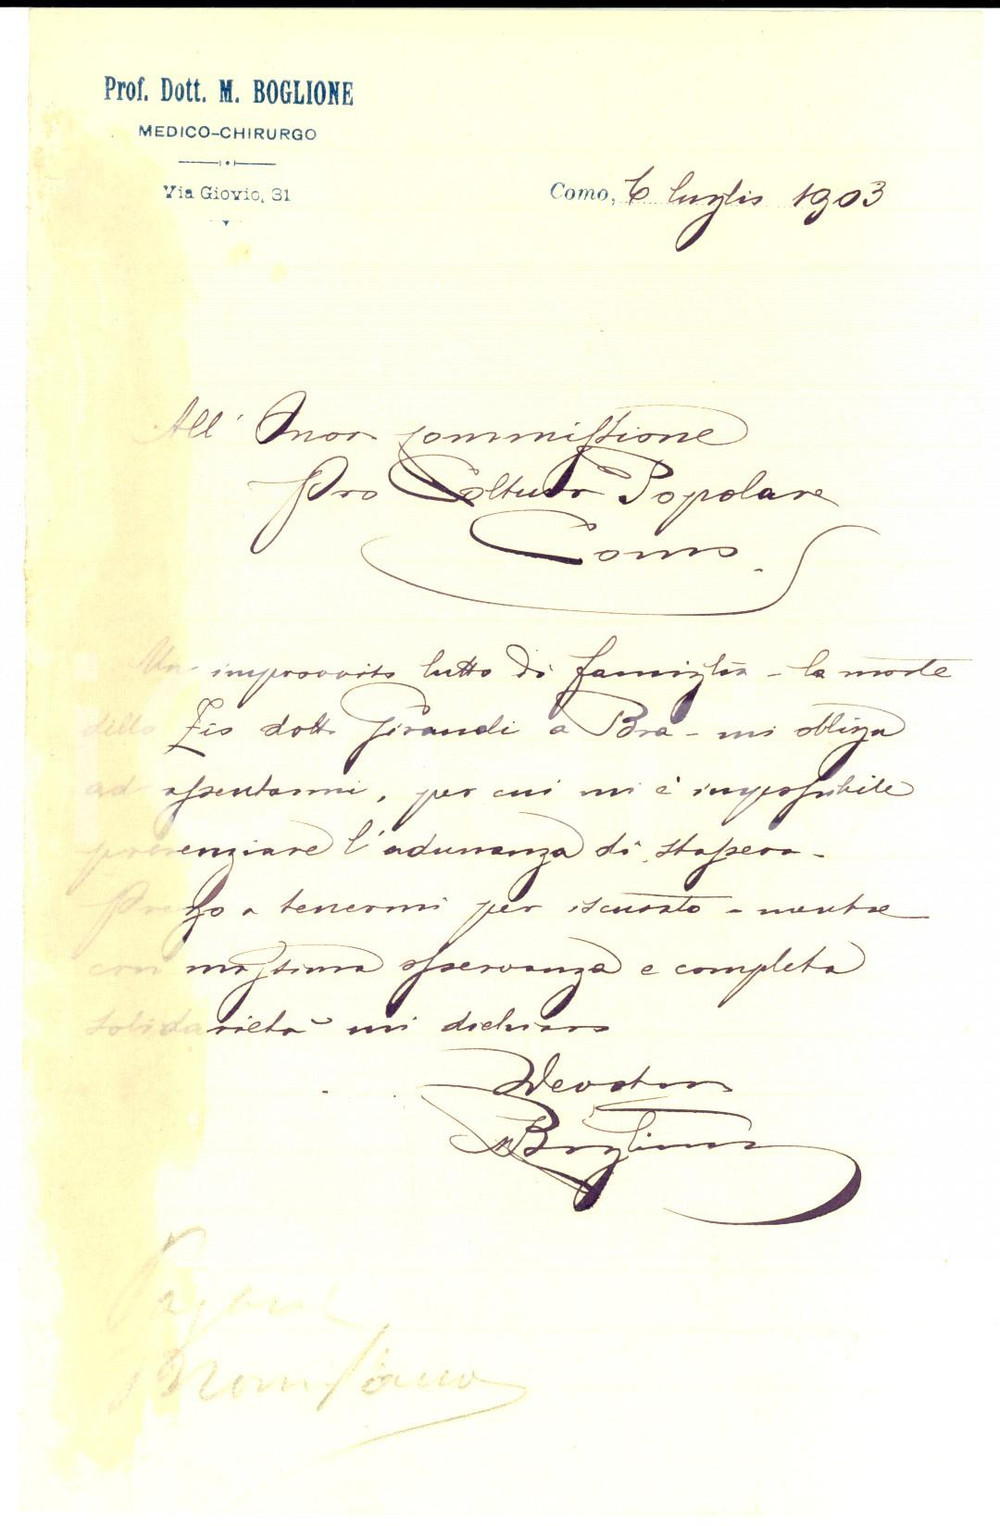 Prof. Dott. M. BOGLIONE
MEDICO-CHIRURGO
Via Giovio, 31
Como, 6 luglio 1903
All' Onor. Commissione
Pro Coltura Popolare
Como.
Un improvviso lutto di famiglia - la morte
dello Zio dott. Girandi a Bra - mi obbliga
ad assentarmi, per cui mi è impossibile
presenziare l'adunanza di stassera -
Prego a tenermi per iscusato - mentre
con massima osservanza e completa
solidarietà mi dichiaro
Devotmo
M Boglione